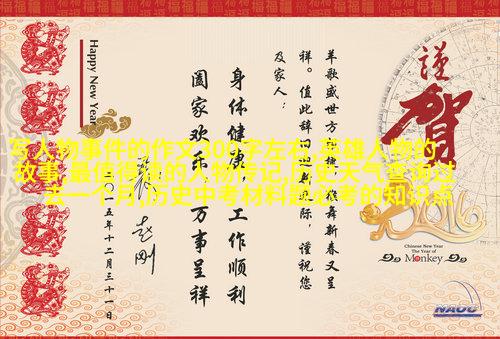 福福福福福福福福
Happy New Year
謹
賀
羊歌盛世方舞新春又呈
祥。值此辞旧际，谨祝您
及家人：
身体健康 工作顺利
阖家欢乐 万事呈祥
赵刚
二〇一五年十二月三十一日
写人物事件的作文300字左右,英雄人物的
故事,最值得读的人物传记,历史天气查询过
去一个月,历史中考材料题必考的知识点
2016
Chinese New Year
The Year of
Monkey
NAOC